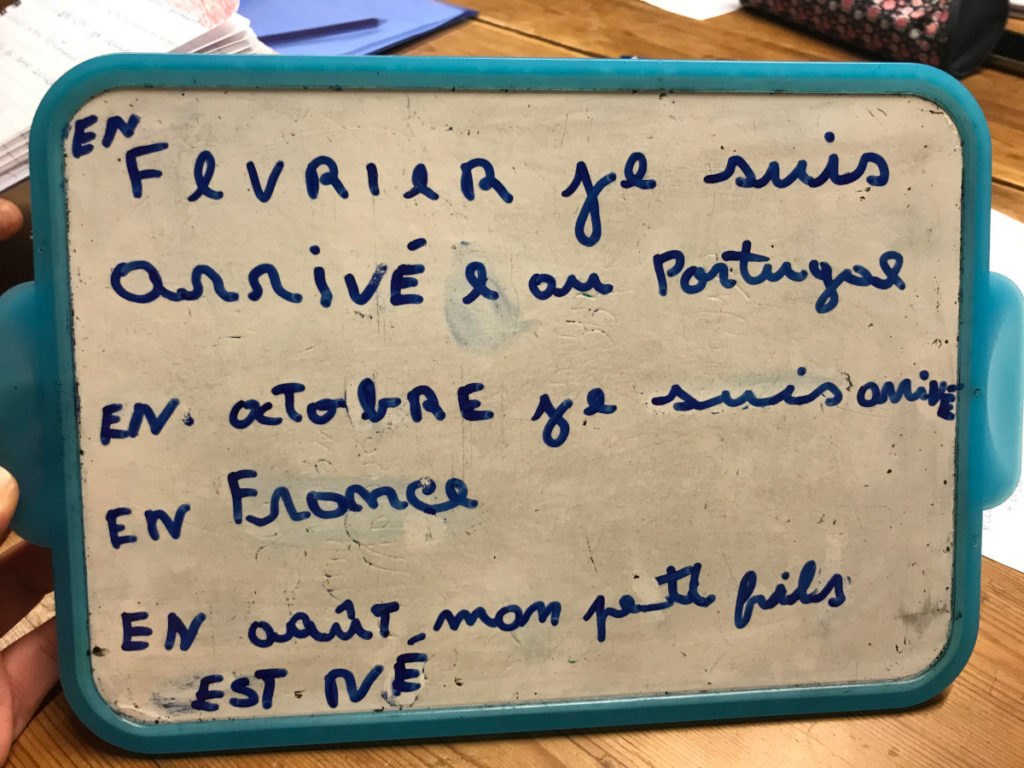 EN
FeVRIeR je suis
ARRiVÉ e au Portugal
EN. octobRE je suis arrivÉ
EN France
EN août mon petit fils
EST NÉ